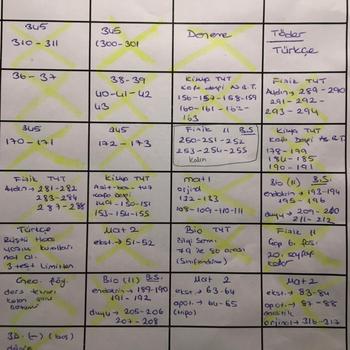 345
310-311
345
(300-301
Deneme
Töder
Türkçe
36-37
38-39
40-41-42
43
Kimya TYT
Kafa dengi A.R.T.
156-157-158-159
160-161-162-
163
Fizik TYT
Aydın 289-290
291-292-
293-294
345
170-171
345
172-173
Fizik 11 B.S.
250-251-252
253-254-255
Kalın
Kimya TYT
Kafa dengi A.R.T.
178-179
184-185
190-191
Fizik TYT
Aydın 281-282
283-284
287-288
Kimya TYT
149-150-151
153-154-155
Mat 1
orjinal
132-133
108-109-110-111
Bio (11) B.S.
endokrin 193-194
195-196
duyu 209-210
211-212
Türkçe
Rüştü Hoca
not al.
3 test Limitten
Mat 2
ekst. 51-52
Bio TYT
Bilgi Sarmal
49 ile 50 arası
(Sınıflandırma)
Fizik 11
Çap 6. fös.
20. sayfaya
kadar
Geo. föy.
ders
Bio (11) B.S.
endokrin 189-190
191-192
duyu 205-206
207-208
Mat 2
ekst. 63-64
apot. 64-65
(tipo)
Mat 2
ekst. 83-84
apot. 87-88
analitik
orjinal 316-317
3D (-) (boş)